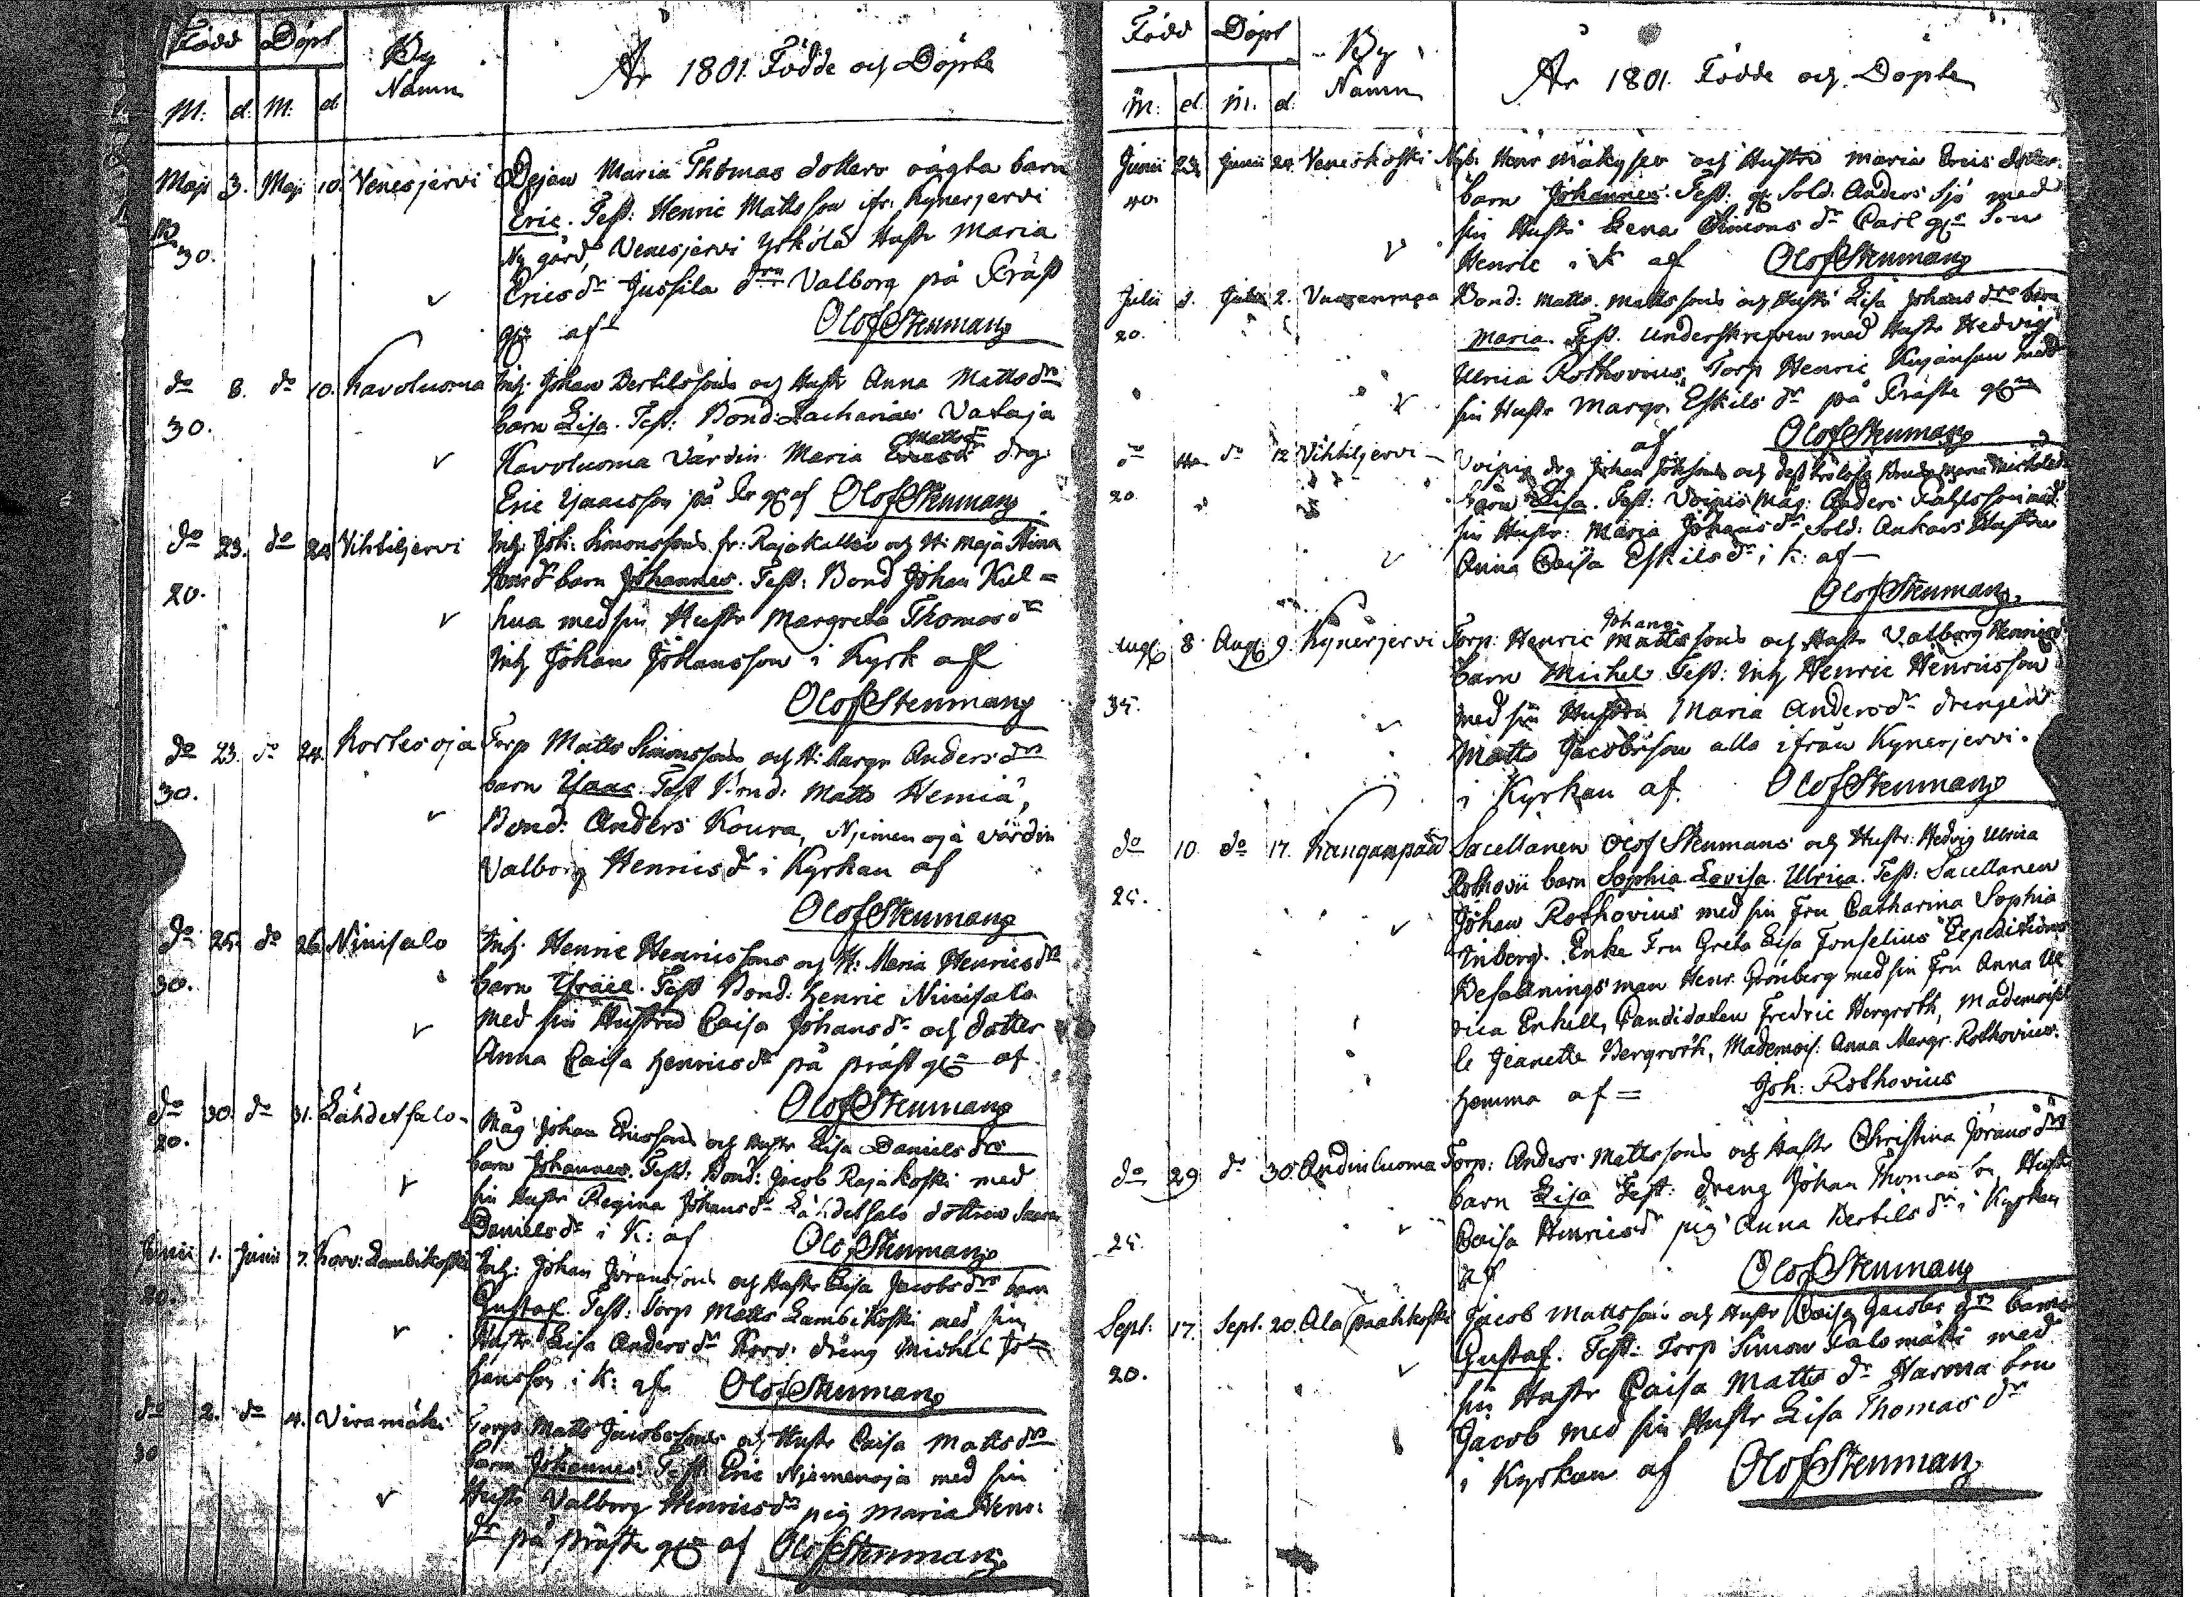 Född Döpt By Namn År 1801. Födde och Döpte
M: d. M: d
Maji 3. Maji 10. Venesjervi Pigan Maria Thomas dotters oägta barn
30. Eric. Test: Henric Mattsson ifr: Kynerjervi
Ny gård, Venesjervi Yrkölä Hustr Maria
Ericsdr Jussila drn Valborg på Präst
gln af Olof Stenman
do 8. do 10. Kavoluoma Inh. Johan Bertilssons och Hustr Anna Mattsdrs
30. barn Lisa. Test: Bond: Zacharias Vataja
Mattsdr
Kavoluoma Värdin Maria drg:
Eric Isaacsson på Pr gln af Olof Stenman
do 23. do 24. Vihtiljervi Inh. Joh: Simonssons fr: Rajakallio och H: Maja Stina
20. barn Johannes. Test: Bond Johan Kul=
hua med sin Hustr Margreta Thomasdr
Inh Johan Johansson i Kyrk af
Olof Stenman
do 23. do 24. Kortesoja Torp Matts Simonssons och H: Margr Andersdrs
30. barn Isaac. Test Bond: Matts Hemiä,
Bond: Anders Koura, Njemenoja värdin
Valborg Henricsdr i Kyrkan af
Olof Stenman
do 25. do 26. Ninisalo Inh. Henric Henricssons och H: Maria Henricsdrs
30. barn Israel. Test Bond: Henric Ninisalo
med sin Hustru Caisa Johansdr och dotter
Anna Caisa Henricsdr på präst gln af
Olof Stenman
do 30. do 31. Lähdetsalo Mäg Johan Ericssons och Hustr Lisa Danielsdrs
20. barn Johannes. Test: Bond: Jacob Rajakoski med
sin Hustr Regina Johansdr Lähdetsalo dottren
Danielsdr i K: af Olof Stenman
Junii 1. Junii 7. Korv: Lambikoski Inh: Johan Jöranssons och Hustr Lisa Jacobsdrs barn
20. Gustaf. Test: Torp Matts Lambikoski med sin
Hustr Lisa Andersdr Korv: dräng Michel Jo=
hansson i K: af Olof Stenman
do 2. do 4. Viramäki Torp Matts Jacobssons och Hustr Caisa Mattsdrs
30 barn Johannes. Test Eric Njemenoja med sin
Hustr Valborg Henricsdr pig Maria Henr:
dr på präste gln af Olof Stenman
Född Döpt By Namn År 1801. Födde och Döpte
M: d. M. d.
Junii 23 Junii 24. Veneskoski Nyb: Henr Mäkyses och Hustrs Maria Erics dotters
40. barn Johannes. Test: Sold: Anders Sjö med
sin Hustr Lena Simonsdr Carl Son
Henric i K af Olof Stenman
Julii 1. Julii 2. Bond: Matts Mattssons och Hustr Lisa Johansdrs barn
20. Maria. Test. Underskrefven med Hustr Hedvig
Ulrica Rothovius, Torp Henric Kujansuu med
sin Hustr Margr. Eskilsdr på Präste gln
af Olof Stenman
do do 12 Vihtiljervi
20. barn Lisa. Test: Mäg: Anders med
sin Hustr: Maria Johansdr, Sold: Ankars Hustru
Anna Caisa Eskilsdr i K: af
Olof Stenman
Johans
Aug 8. Aug 9. Kynerjervi Torp: Henric Mattssons och Hustr Valborg Henricsdrs
35. barn Michel Test: Inh Henric Henricsson
med sin Hustru Maria Andersdr drengen
Matts Jacobsson alla ifrån Kynerjervi.
i Kyrkan af Olof Stenman
do 10 do 17. Kanganpää Sacellanen Olof Stenmans och Hustr: Hedvig Ulrica
25. Rothovii barn Sophia Lovisa Ulrica. Test: Sacellanen
Johan Rothovius med sin Fru Catharina Sophia
Inberg. Enke Fru Greta Lisa Forselius Expeditions
Befallningsman Henr. Grönberg med sin Fru Anna Ul
rica Enkell, Candidaten Fredric Bergroth, Mademoisel
le Jeanette Bergroth, Mademois: Anna Margr. Rothovius.
hemma af = Joh: Rothovius
do 29 do 30. Andinluoma Torp: Anders Mattssons och Hustr Christina Jöransdrs
25. barn Lisa Test: dreng Johan Thomas
Caisa Henricsdr pig Anna Bertilsdr i Kyrkan
af Olof Stenman
Sept: 17. Sept. 20. Ala Jacob Mattssons och Hustr Caisa Jacobs drs barn
20. Gustaf. Test: Torp Simon Salomäki med
sin Hustr Caisa Mattsdr Harma
Jacob med sin Hustr Lisa Thomas dr
i Kyrkan af Olof Stenman